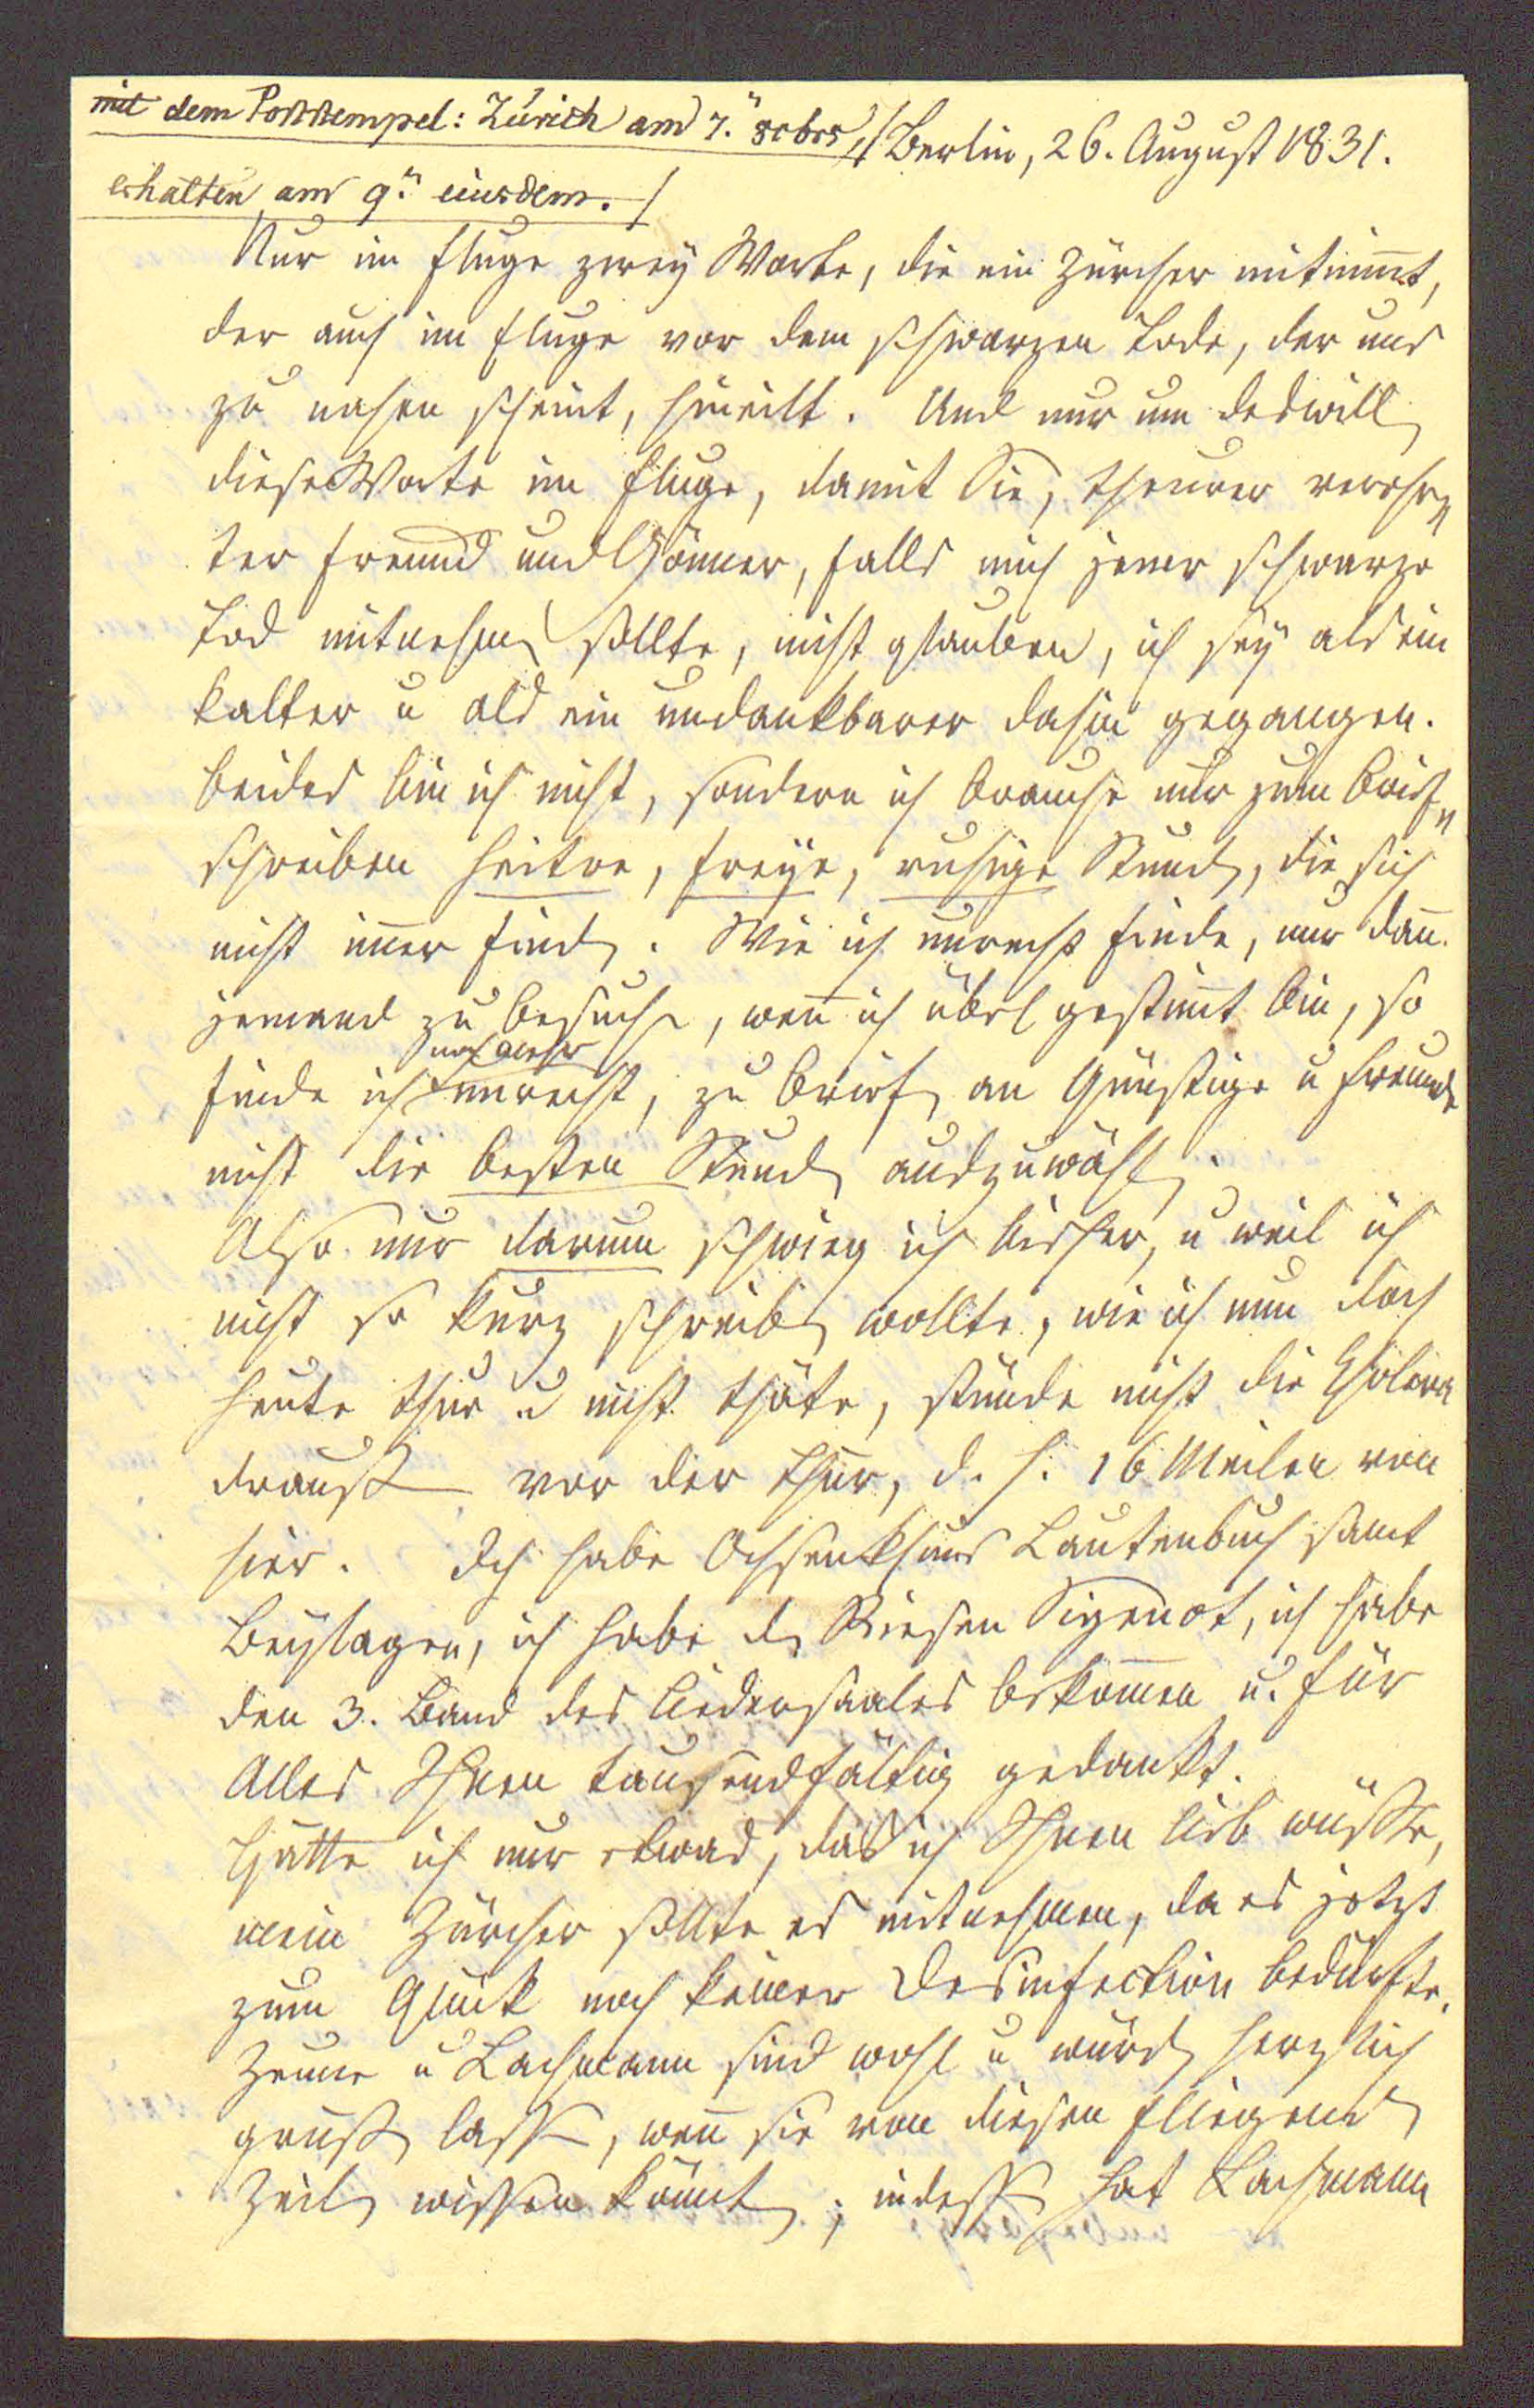 mit dem Poststempel: Zürich am 7.n 8obrs
erhalten am 9.n eiusdem.
Berlin, 26. August 1831.
Nur im Fluge zwey Worte, die ein Zürcher mitnim̅t,
der auch im Fluge vor dem schwarzen Tode, der uns
zu nahen scheint, hineilt. Und nur um deswill
diese Worte im Fluge, damit Sie, theurer verehr=
ter Freund und Gönner, falls mich jener schwarze
Tod mitnehmen sollte, nicht glauben, ich sey als ein
kalter u als ein undankbarer dahin gegangen.
beides bin ich nicht, sondern ich brauche nur zum Brief=
schreiben heitre, freye, ruhige Stunden, die sich
nicht im̅er finden. Wie ich unrecht finde, nur dan̅
jemand zu besuchen, wen̅ ich übel gestim̅t bin, so
finde ich noch mehr unrecht, zu Briefen an Günstige u Freunde
nicht die besten Stunden auszuwählen.
Also nur darum schwieg ich bisher, u weil ich
nicht so kurz schreiben wollte, wie ich nun doch
heute thue u nicht thäte, stünde nicht die Cholera
draußen vor der Thür, d. h. 16 Meilen von
hier. Ich habe Ochsenkhuns Lautenbuch samt
Beylagen, ich habe den Riesen Sigenot, ich habe
den 3. Band des Liedersaales bekom̅en u. für
Alles Ihnen tausendfältig gedankt.
Hätte ich nur etwas, das ich Ihnen lieb wüßte,
mein Zürcher sollte es mitnehmen, da es jetzt
zum Glück noch keiner Desinfection bedürfte.
Zeune u Lachmann sind wohl u würden herzlich
grüßen lassen, wen̅ sie von diesen fliegenden
Zeilen wissen könnten; indessen hat Lachmann